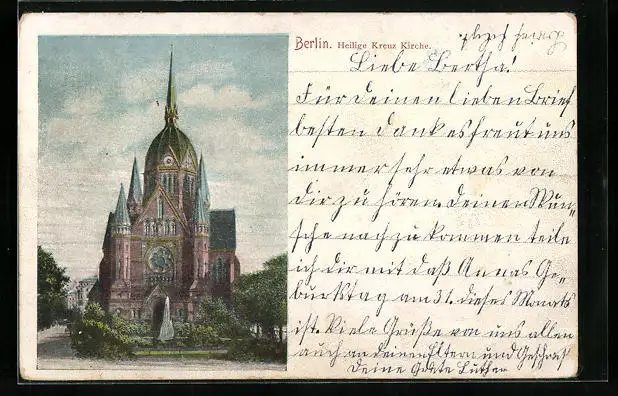 Berlin. Heilige Kreuz Kirche.
Liebe Bertha!
Für deinen lieben Brief
besten dank es freut uns
immer sehr etwas von
dir zu hören. deinen Wun=
sche nach zu kommen teile
ich dir mit daß Annas Ge=
burtstag am 31. dieses Monats
ist. Viele Grüße von uns allen
auch an deinen Eltern und Geschwist
deine Grete Luther